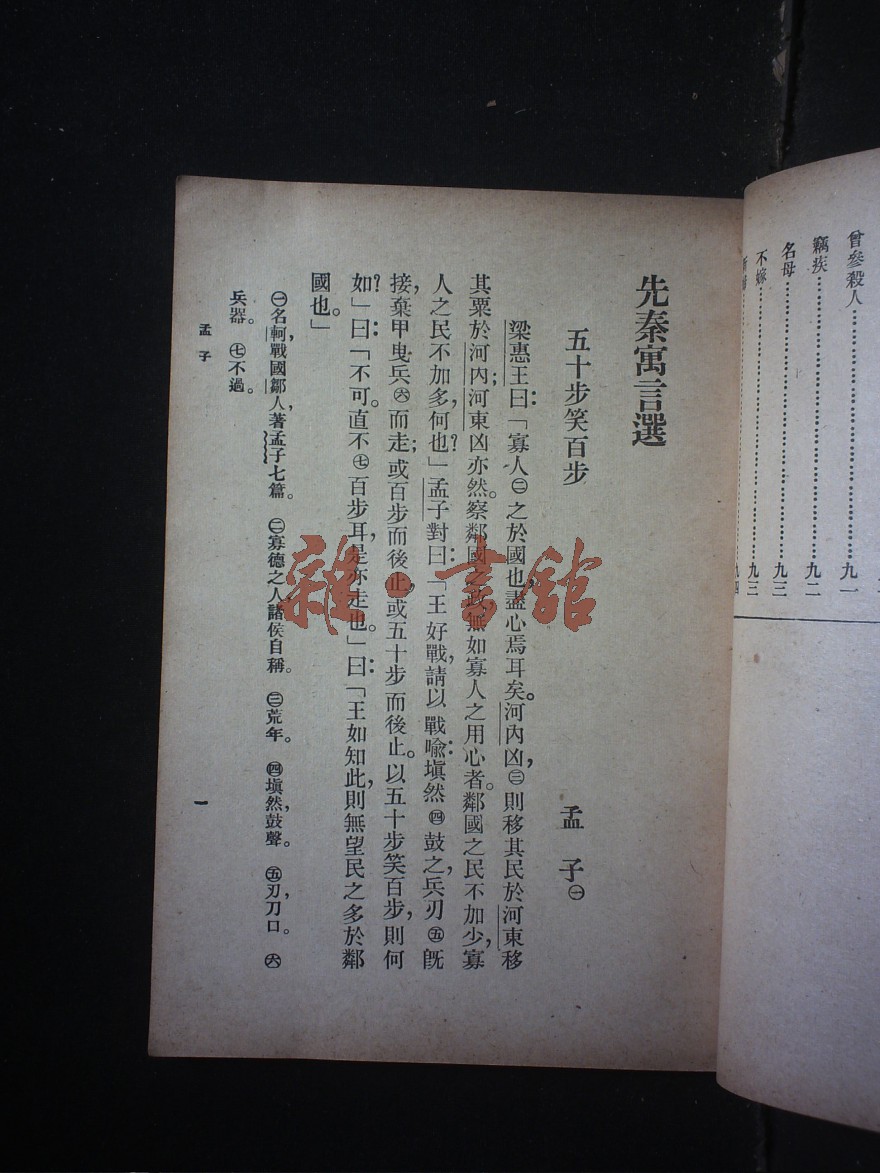 曾參殺人……九一
竊疾……九二
名母……九三
不嫁……九三
九四
先秦寓言選
五十步笑百步 孟子㊀
梁惠王曰：「寡人㊁之於國也，盡心焉耳矣。河內凶，㊂則移其民於河東，移
其粟於河內；河東凶亦然。察鄰國之政，無如寡人之用心者。鄰國之民不加少，寡
人之民不加多，何也？」孟子對曰：「王好戰，請以戰喻：塡然㊃鼓之，兵刃㊄旣
接，棄甲曳兵㊅而走；或百步而後止，或五十步而後止。以五十步笑百步，則何
如？」曰：「不可。直不㊆百步耳，是亦走也。」曰：「王如知此，則無望民之多於鄰
國也。」
㊀名軻，戰國鄒人，著孟子七篇。 ㊁寡德之人，諸侯自稱。 ㊂荒年。 ㊃塡然，鼓聲。 ㊄刃，刀口。 ㊅
兵器。 ㊆不過。
孟子 一
雜·書館